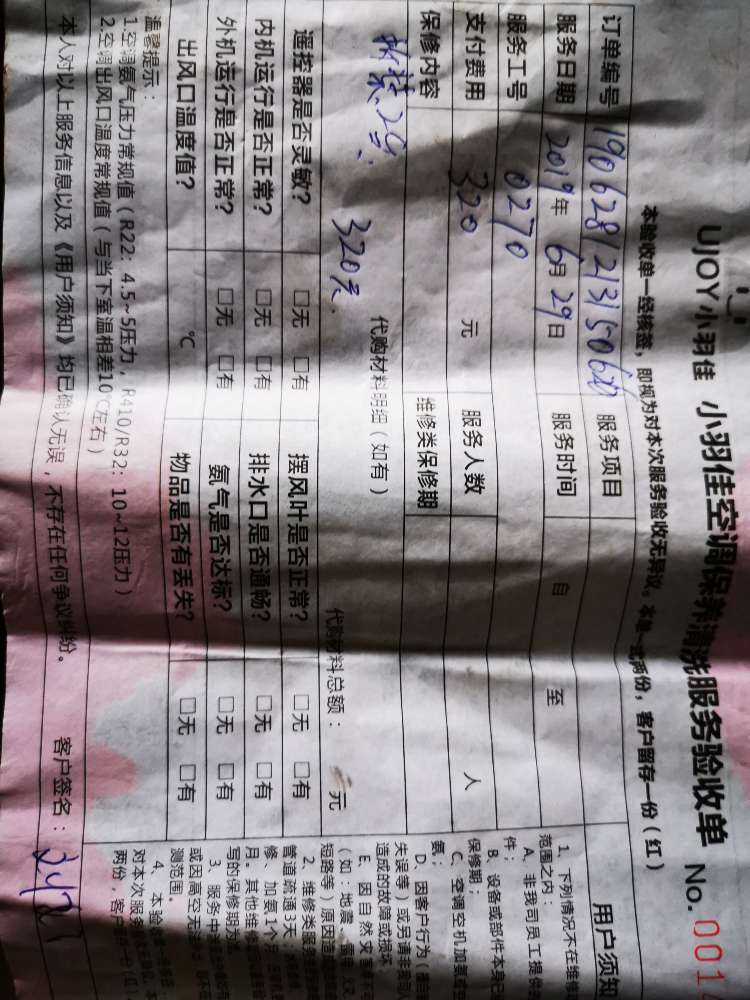 UJOY小羽佳 小羽佳空调保养清洗服务验收单 No. 001
本验收单一经核签，即视为对本次服务验收无异议。本单一式两份，客户留存一份（红）
订单编号 服务项目
服务日期 2019年 6月 29日 服务时间 自 至
服务工号 0270
支付费用 320 元 服务人数 人
保修内容 维修类保修期
拆装2台. 320元.
代购材料明细（如有）
代购材料总额： 元
遥控器是否灵敏? □无 □有 摆风叶是否正常? □无 □有
内机运行是否正常? □无 □有 排水口是否通畅? □无 □有
外机运行是否正常? □无 □有 氨气是否达标? □无 □有
出风口温度值? ℃ 物品是否有丢失? □无 □有
温馨提示：
1.空调氨气压力常规值（R22：4.5~5压力，R410/R32：10~12压力）
2.空调出风口温度常规值（与当下室温相差10℃左右）
本人对以上服务信息以及《用户须知》均已确认无误，不存在任何争议纠纷。 客户签名：
用户须知
1、下列情况不在维修
范围之内：
A、非我司员工提供
件；
B、设备或部件本身已
保修期；
C、空调空机加氨或
氨；
D、因客户行为
失误等）或另请非我司人
造成的故障或损坏
E、因自然灾害
（如：地震、
短路等）原因造
2、维修类服务
管道疏通3天；
修、加氨1个
月。其他维修
写的保修期为
3、服务中
或因高空无
测范围。
4、本验
对本次服务
两份，客户